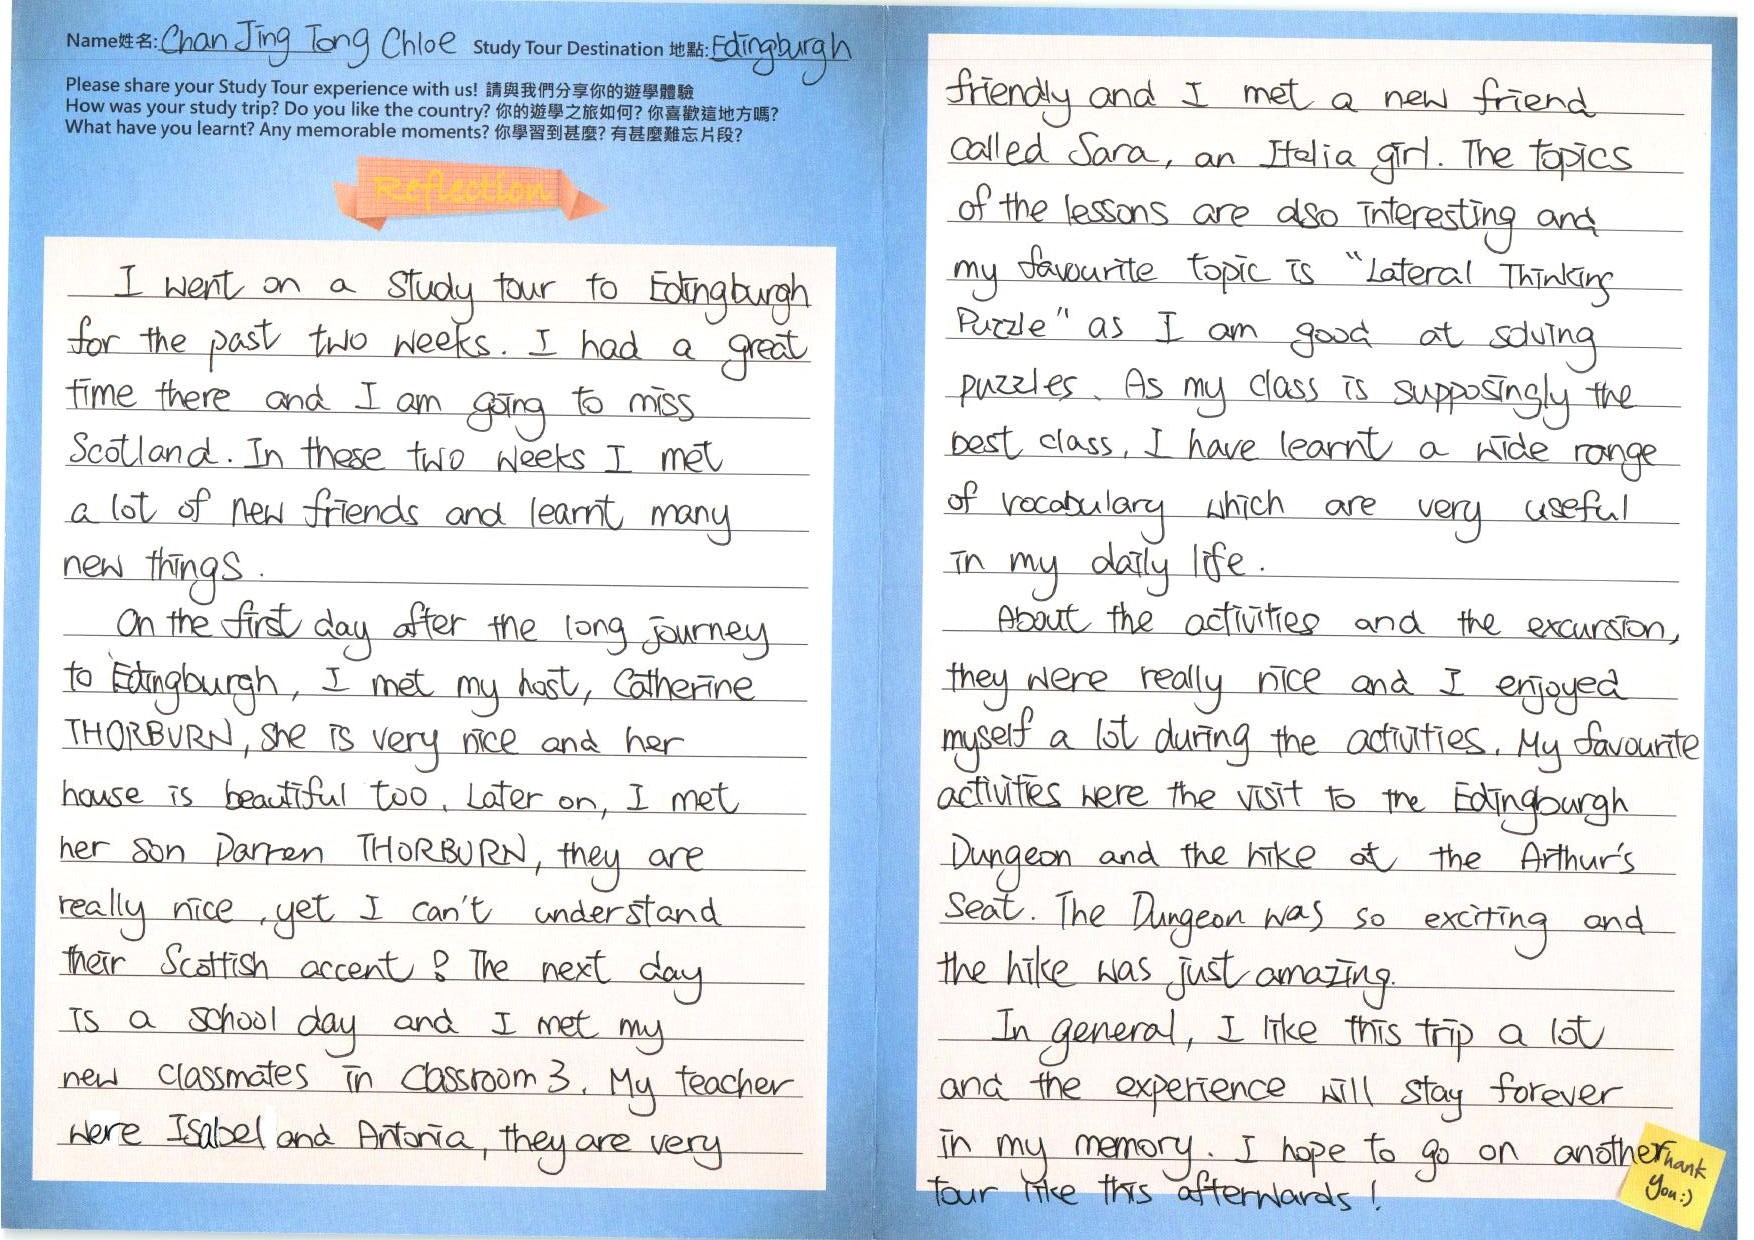 Name姓名: Chan Jing Tong Chloe Study Tour Destination 地點: Edingburgh
Please share your Study Tour experience with us! 請與我們分享你的遊學體驗
How was your study trip? Do you like the country? 你的遊學之旅如何? 你喜歡這地方嗎?
What have you learnt? Any memorable moments? 你學習到甚麼? 有甚麼難忘片段?
Reflection
I went on a study tour to Edingburgh
for the past two weeks. I had a great
time there and I am going to miss
Scotland. In these two weeks I met
a lot of new friends and learnt many
new things.
On the first day after the long journey
to Edingburgh, I met my host, Catherine
THORBURN, she is very nice and her
house is beautiful too. Later on, I met
her son Darren THORBURN, they are
really nice, yet I can't understand
their Scottish accent! The next day
is a school day and I met my
new classmates in Classroom 3. My teacher
were Isabel and Antonia, they are very
friendly and I met a new friend
called Sara, an Italia girl. The topics
of the lessons are also interesting and
my favourite topic is "Lateral Thinking
Puzzle" as I am good at solving
puzzles. As my class is supposingly the
best class, I have learnt a wide range
of vocabulary which are very useful
in my daily life.
About the activities and the excursion,
they were really nice and I enjoyed
myself a lot during the activities. My favourite
activities were the visit to the Edingburgh
Dungeon and the hike at the Arthur's
Seat. The Dungeon was so exciting and
the hike was just amazing.
In general, I like this trip a lot
and the experience will stay forever
in my memory. I hope to go on another
tour like this afterwards!
Thank
you:)